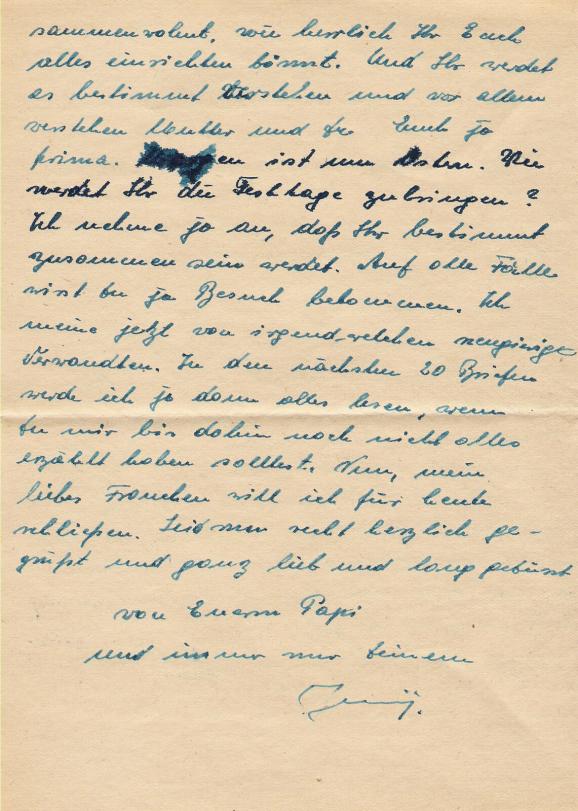 sammenwohnt, wie herrlich Ihr Euch
alles einrichten könnt. Und Ihr werdet
es bestimmt verstehen und vor allem
verstehen Mutter und Du Euch ja
prima. Morgen ist nun Ostern. Wie
werdet Ihr die Festtage zubringen?
Ich nehme ja an, daß Ihr bestimmt
zusammen sein werdet. Auf alle Fälle
wirst Du ja Besuch bekommen. Ich
meine jetzt von irgend-welchen neugierigen
Verwandten. In den nächsten 20 Briefen
werde ich ja dann alles lesen, wenn
Du mir bis dahin noch nicht alles
erzählt haben solltest. Nun, mein
liebes Frauchen will ich für heute
schließen. Seid nun recht herzlich ge-
grüßt und ganz lieb und lang geküsst
von Euerm Papi
und immer nur Deinem